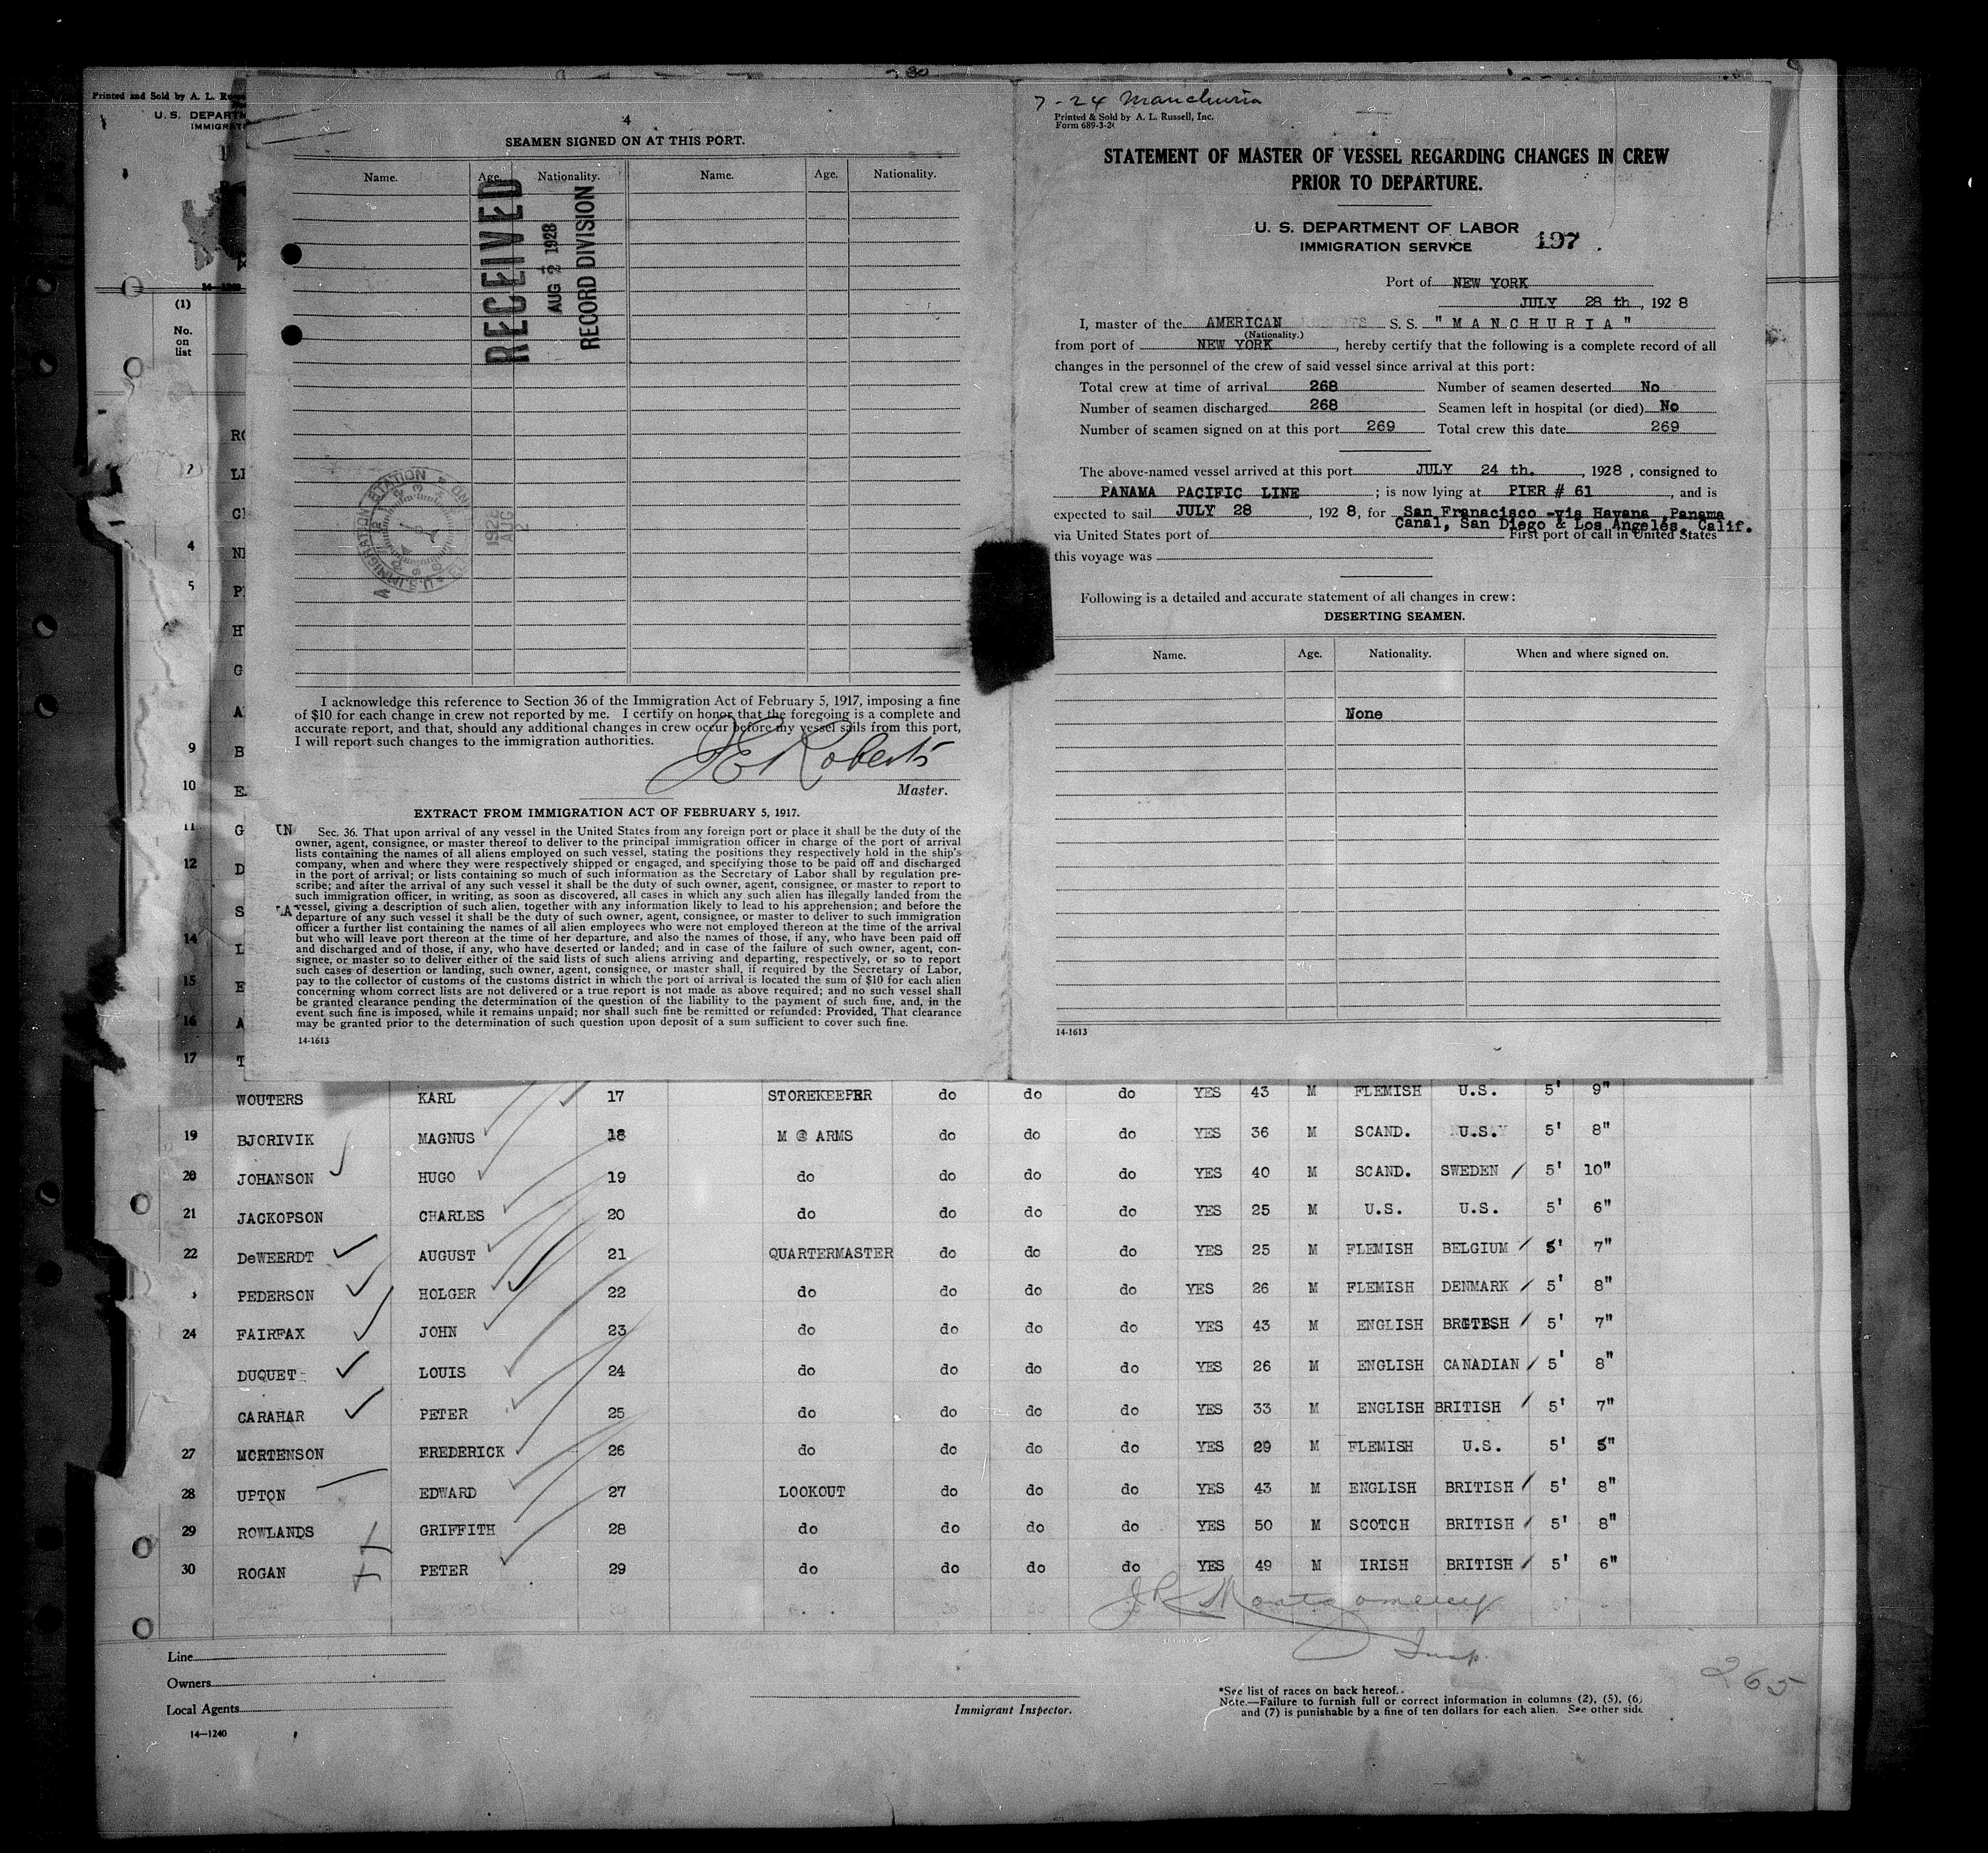 Printed and Sold by A. L.
U. S.
(1)
No.
on
list
4
SEAMEN SIGNED ON AT THIS PORT.
Name. Age. Nationality. Name. Age. Nationality.
RECEIVED
AUG 2 1928
RECORD DIVISION
1928
AUG
2
I acknowledge this reference to Section 36 of the Immigration Act of February 5, 1917, imposing a fine
of $10 for each change in crew not reported by me. I certify on honor that the foregoing is a complete and
accurate report, and that, should any additional changes in crew occur before my vessel sails from this port,
I will report such changes to the immigration authorities.
J E Roberts
Master.
EXTRACT FROM IMMIGRATION ACT OF FEBRUARY 5, 1917.
Sec. 36. That upon arrival of any vessel in the United States from any foreign port or place it shall be the duty of the
owner, agent, consignee, or master thereof to deliver to the principal immigration officer in charge of the port of arrival
lists containing the names of all aliens employed on such vessel, stating the positions they respectively hold in the ship's
company, when and where they were respectively shipped or engaged, and specifying those to be paid off and discharged
in the port of arrival; or lists containing so much of such information as the Secretary of Labor shall by regulation pre-
scribe; and after the arrival of any such vessel it shall be the duty of such owner, agent, consignee, or master to report to
such immigration officer, in writing, as soon as discovered, all cases in which any such alien has illegally landed from the
vessel, giving a description of such alien, together with any information likely to lead to his apprehension; and before the
departure of any such vessel it shall be the duty of such owner, agent, consignee, or master to deliver to such immigration
officer a further list containing the names of all alien employees who were not employed thereon at the time of the arrival
but who will leave port thereon at the time of her departure, and also the names of those, if any, who have been paid off
and discharged and of those, if any, who have deserted or landed; and in case of the failure of such owner, agent, con-
signee, or master so to deliver either of the said lists of such aliens arriving and departing, respectively, or so to report
such cases of desertion or landing, such owner, agent, consignee, or master shall, if required by the Secretary of Labor,
pay to the collector of customs of the customs district in which the port of arrival is located the sum of $10 for each alien
concerning whom correct lists are not delivered or a true report is not made as above required; and no such vessel shall
be granted clearance pending the determination of the question of the liability to the payment of such fine, and, in the
event such fine is imposed, while it remains unpaid; nor shall such fine be remitted or refunded: Provided, That clearance
may be granted prior to the determination of such question upon deposit of a sum sufficient to cover such fine.
14-1613
7-24 Manchuria
Printed & Sold by A. L. Russell, Inc.
Form 689-3-26
STATEMENT OF MASTER OF VESSEL REGARDING CHANGES IN CREW
PRIOR TO DEPARTURE.
U. S. DEPARTMENT OF LABOR
IMMIGRATION SERVICE 197
Port of NEW YORK
JULY 28 th, 1928
I, master of the AMERICAN S. S. "MANCHURIA"
(Nationality.)
from port of NEW YORK, hereby certify that the following is a complete record of all
changes in the personnel of the crew of said vessel since arrival at this port:
Total crew at time of arrival 268 Number of seamen deserted No
Number of seamen discharged 268 Seamen left in hospital (or died) No
Number of seamen signed on at this port 269 Total crew this date 269
The above-named vessel arrived at this port JULY 24 th., 1928, consigned to
PANAMA PACIFIC LINE; is now lying at PIER # 61, and is
expected to sail JULY 28, 1928, for San Franacisco -via Havana ,Panama
Canal, San Diego & Los Angeles. Calif.
via United States port of First port of call in United States
this voyage was
Following is a detailed and accurate statement of all changes in crew:
DESERTING SEAMEN.
Name. Age. Nationality. When and where signed on.
None
14-1613
WOUTERS KARL 17 STOREKEEPER do do do YES 43 M FLEMISH U.S. 5' 9"
19 BJORIVIK MAGNUS 18 M @ ARMS do do do YES 36 M SCAND. U.S. 5' 8"
20 JOHANSON HUGO 19 do do do do YES 40 M SCAND. SWEDEN 5' 10"
21 JACKOPSON CHARLES 20 do do do do YES 25 M U.S. U.S. 5' 6"
22 DeWEERDT AUGUST 21 QUARTERMASTER do do do YES 25 M FLEMISH BELGIUM 5' 7"
PEDERSON HOLGER 22 do do do do YES 26 M FLEMISH DENMARK 5' 8"
24 FAIRFAX JOHN 23 do do do do YES 43 M ENGLISH BRITISH 5' 7"
DUQUET LOUIS 24 do do do do YES 26 M ENGLISH CANADIAN 5' 8"
CARAHAR PETER 25 do do do do YES 33 M ENGLISH BRITISH 5' 7"
27 MORTENSON FREDERICK 26 do do do do YES 29 M FLEMISH U.S. 5' 5"
28 UPTON EDWARD 27 LOOKOUT do do do YES 43 M ENGLISH BRITISH 5' 8"
29 ROWLANDS GRIFFITH 28 do do do do YES 50 M SCOTCH BRITISH 5' 8"
30 ROGAN PETER 29 do do do do YES 49 M IRISH BRITISH 5' 6"
J R Montgomery
Insp.
265
Line
Owners
Local Agents
14—1240
Immigrant Inspector.
*See list of races on back hereof.
Note.—Failure to furnish full or correct information in columns (2), (5), (6)
and (7) is punishable by a fine of ten dollars for each alien. See other side